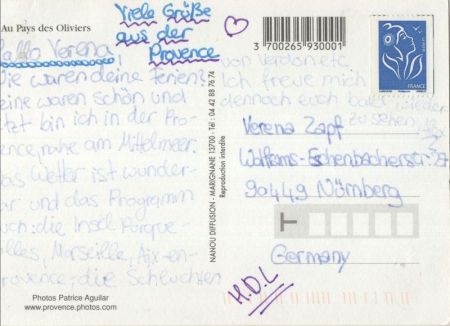 Au Pays des Oliviers
Viele Grüße
aus der
Provence
Hallo Verena,
Wie waren deine Ferien?
Meine waren schön und
jetzt bin ich in der Pro-
vence, nahe am Mittelmeer.
Das Wetter ist wunder-
bar und das Programm
auch: die Insel Porque-
rolles, Marseille, Aix-en-
Provence, die Schluchten
von Verdon etc.
Ich freue mich
dennoch euch bald wieder
zu sehen
H.D.L
3 700265 930001
FRANCE
Verena Zapf
90449 Nürnberg
Germany
NANOU DIFFUSION - MARIGNANE 13700 - Tél : 04 42 88 76 74
Reproduction interdite
Photos Patrice Aguilar
www.provence.photos.com